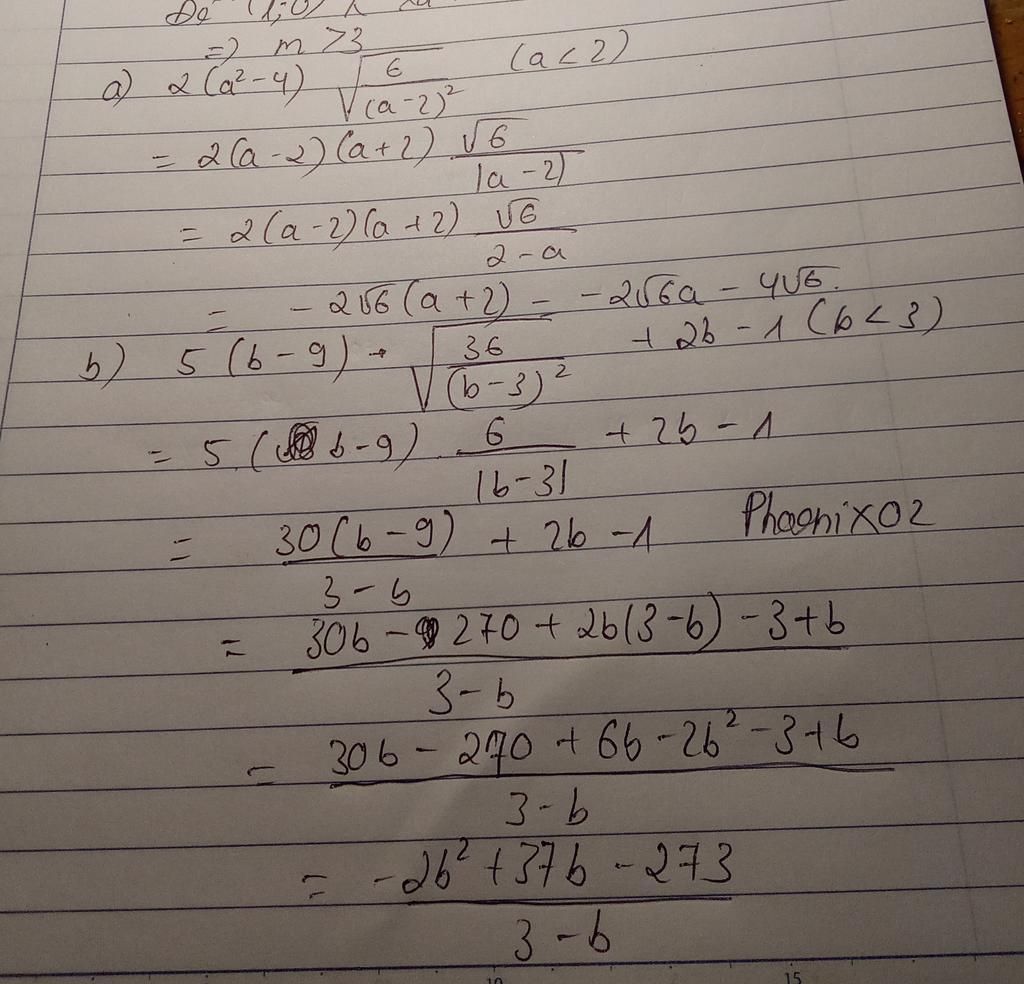 => m > 3
a) 2(a² - 4) √(6/(a-2)²) (a < 2)
= 2(a-2)(a+2) √6/|a-2|
= 2(a-2)(a+2) √6/(2-a)
= -2√6(a+2) = -2√6a - 4√6.
b) 5(b-9) · √(36/(b-3)²) + 2b - 1 (b < 3)
= 5.(b-9) . 6/|b-3| + 2b - 1
= 30(b-9)/(3-b) + 2b - 1 PhoenixO2
= (30b - 270 + 2b(3-b) - 3+b)/(3-b)
= (30b - 270 + 6b - 2b² - 3+b)/(3-b)
= (-2b² + 37b - 273)/(3-b)
10 15